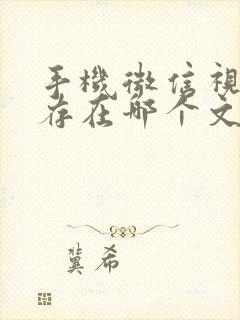 手機微信視
存在哪个文
冀希